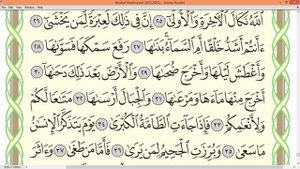 Mushaf Madina.pdf (SECURED) - Adobe Reader
ٱللَّهُ نَكَالَ ٱلْءَاخِرَةِ وَٱلْأُولَىٰٓ ٢٥ إِنَّ فِى ذَٰلِكَ لَعِبْرَةً لِّمَن يَخْشَىٰٓ ٢٦
ءَأَنتُمْ أَشَدُّ خَلْقًا أَمِ ٱلسَّمَآءُ بَنَىٰهَا ٢٧ رَفَعَ سَمْكَهَا فَسَوَّىٰهَا ٢٨
وَأَغْطَشَ لَيْلَهَا وَأَخْرَجَ ضُحَىٰهَا ٢٩ وَٱلْأَرْضَ بَعْدَ ذَٰلِكَ دَحَىٰهَآ ٣٠
أَخْرَجَ مِنْهَا مَآءَهَا وَمَرْعَىٰهَا ٣١ وَٱلْجِبَالَ أَرْسَىٰهَا ٣٢ مَتَٰعًا لَّكُمْ
وَلِأَنْعَٰمِكُمْ ٣٣ فَإِذَا جَآءَتِ ٱلطَّآمَّةُ ٱلْكُبْرَىٰ ٣٤ يَوْمَ يَتَذَكَّرُ ٱلْإِنسَٰنُ
مَا سَعَىٰ ٣٥ وَبُرِّزَتِ ٱلْجَحِيمُ لِمَن يَرَىٰ ٣٦ فَأَمَّا مَن طَغَىٰ ٣٧ وَءَاثَرَ